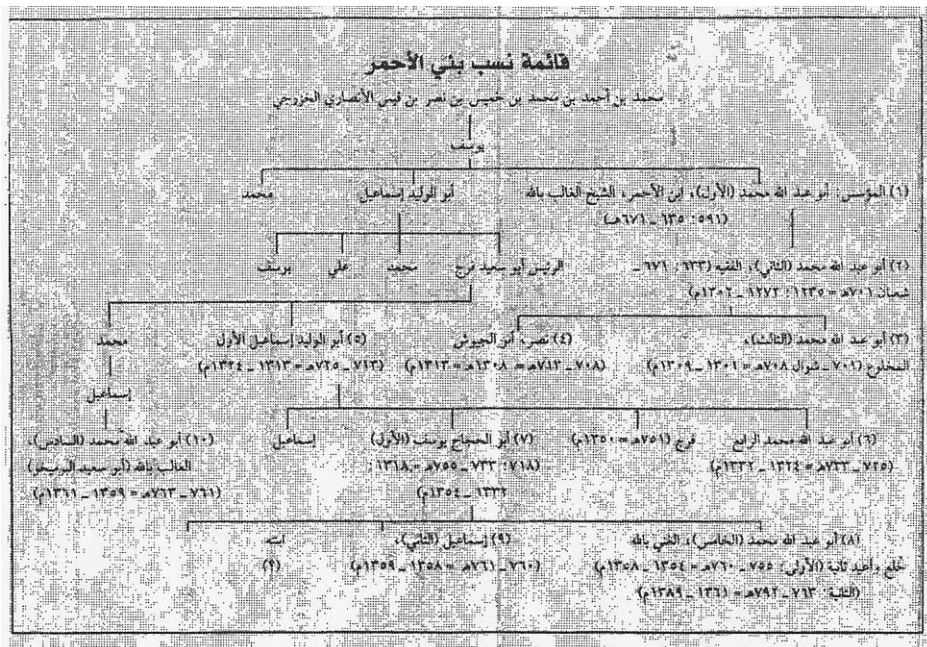 قائمة نسب بني الأحمر
محمد بن أحمد بن محمد بن خميس بن نصر بن قيس الأنصاري الخزرجي
يوسف
(١) المؤسس: أبو عبد الله محمد (الأول)، ابن الأحمر، الشيخ الغالب بالله
(٥٩١: ٦٣٥ ـ ٦٧١هـ)
أبو الوليد إسماعيل
محمد
(٢) أبو عبد الله محمد (الثاني)، الفقيه (٦٣٣: ٦٧١ ـ
شعبان ٧٠١هـ = ١٢٣٥: ١٢٧٢ ـ ١٣٠٢م)
الرئيس أبو سعيد فرج
محمد
علي
يوسف
(٣) أبو عبد الله محمد (الثالث)،
المخلوع (٧٠١ ـ شوال ٧٠٨هـ = ١٣٠١ ـ ١٣٠٩م)
(٤) نصر، أبو الجيوش
(٧٠٨ ـ ٧١٣هـ = ١٣٠٨هـ = ١٣١٣م)
(٥) أبو الوليد إسماعيل الأول
(٧١٣ ـ ٧٢٥هـ = ١٣١٣ ـ ١٣٢٤م)
محمد
إسماعيل
(٦) أبو عبد الله محمد الرابع
(٧٢٥ ـ ٧٣٣هـ = ١٣٢٤ ـ ١٣٣٢م)
فرج (٧٥١هـ = ١٣٥٠م)
(٧) أبو الحجاج يوسف (الأول)
(٧١٨: ٧٣٣ ـ ٧٥٥هـ = ١٣١٨:
١٣٣٢ ـ ١٣٥٤م)
إسماعيل
(١٠) أبو عبد الله محمد (السادس)،
الغالب بالله (أبو سعيد البرميخو)
(٧٦١ ـ ٧٦٣هـ = ١٣٥٩ ـ ١٣٦١م)
(٨) أبو عبد الله محمد (الخامس)، الغني بالله
خُلع وأعيد ثانية (الأولى: ٧٥٥ ـ ٧٦٠هـ = ١٣٥٤ ـ ١٣٥٨م)
(الثانية: ٧٦٣ ـ ٧٩٢هـ = ١٣٦١ ـ ١٣٨٩م)
(٩) إسماعيل (الثاني)،
(٧٦٠ ـ ٧٦١هـ = ١٣٥٨ ـ ١٣٥٩م)
ابنته
(؟)